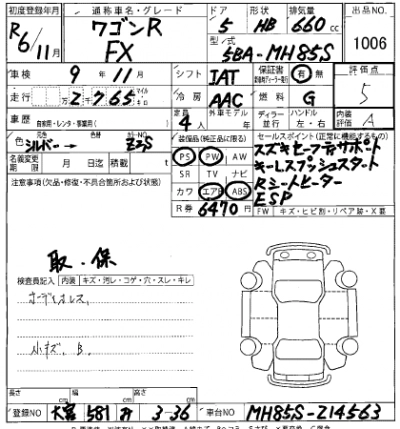 初度登録年月 通称車名・グレード ドア 形状 排気量 出品NO
R6/11月 ワゴンR FX 5 HB 660cc 1006
型/式 5BA-MH85S
車検 9年11月 シフト IAT 保証書 有 無 評価点
走行 万2765 マイル キロ 冷房 AAC 燃料 G 5
車歴 自家用・レンタ・事業用( ) 定員 4人 外車モデル 年 ディーラー 並行 ハンドル 左・右 内装評価 A
色 元色 シルバー→ カラーNO Z2S 装備品(純正品に限る) セールスポイント(正常に機能するもの)
名義変更期限 月 日迄 積載 t PS PW AW スズキセーフティサポート
注意事項(欠品・修復・不具合箇所および状態) SR TV ナビ キーレスプッシュスタート
カワ エアB ABS Rシートヒーター
R券 6470円 ESP
FW キズ・ヒビ割・リペア跡・X要
取・保
検査員記入 内装 キズ・汚レ・コゲ・穴・スレ・キレ
オーディオレス
小キズ B.
長さ 幅 高さ
登録NO 大宮 581 3-36 車台NO MH85S-214563